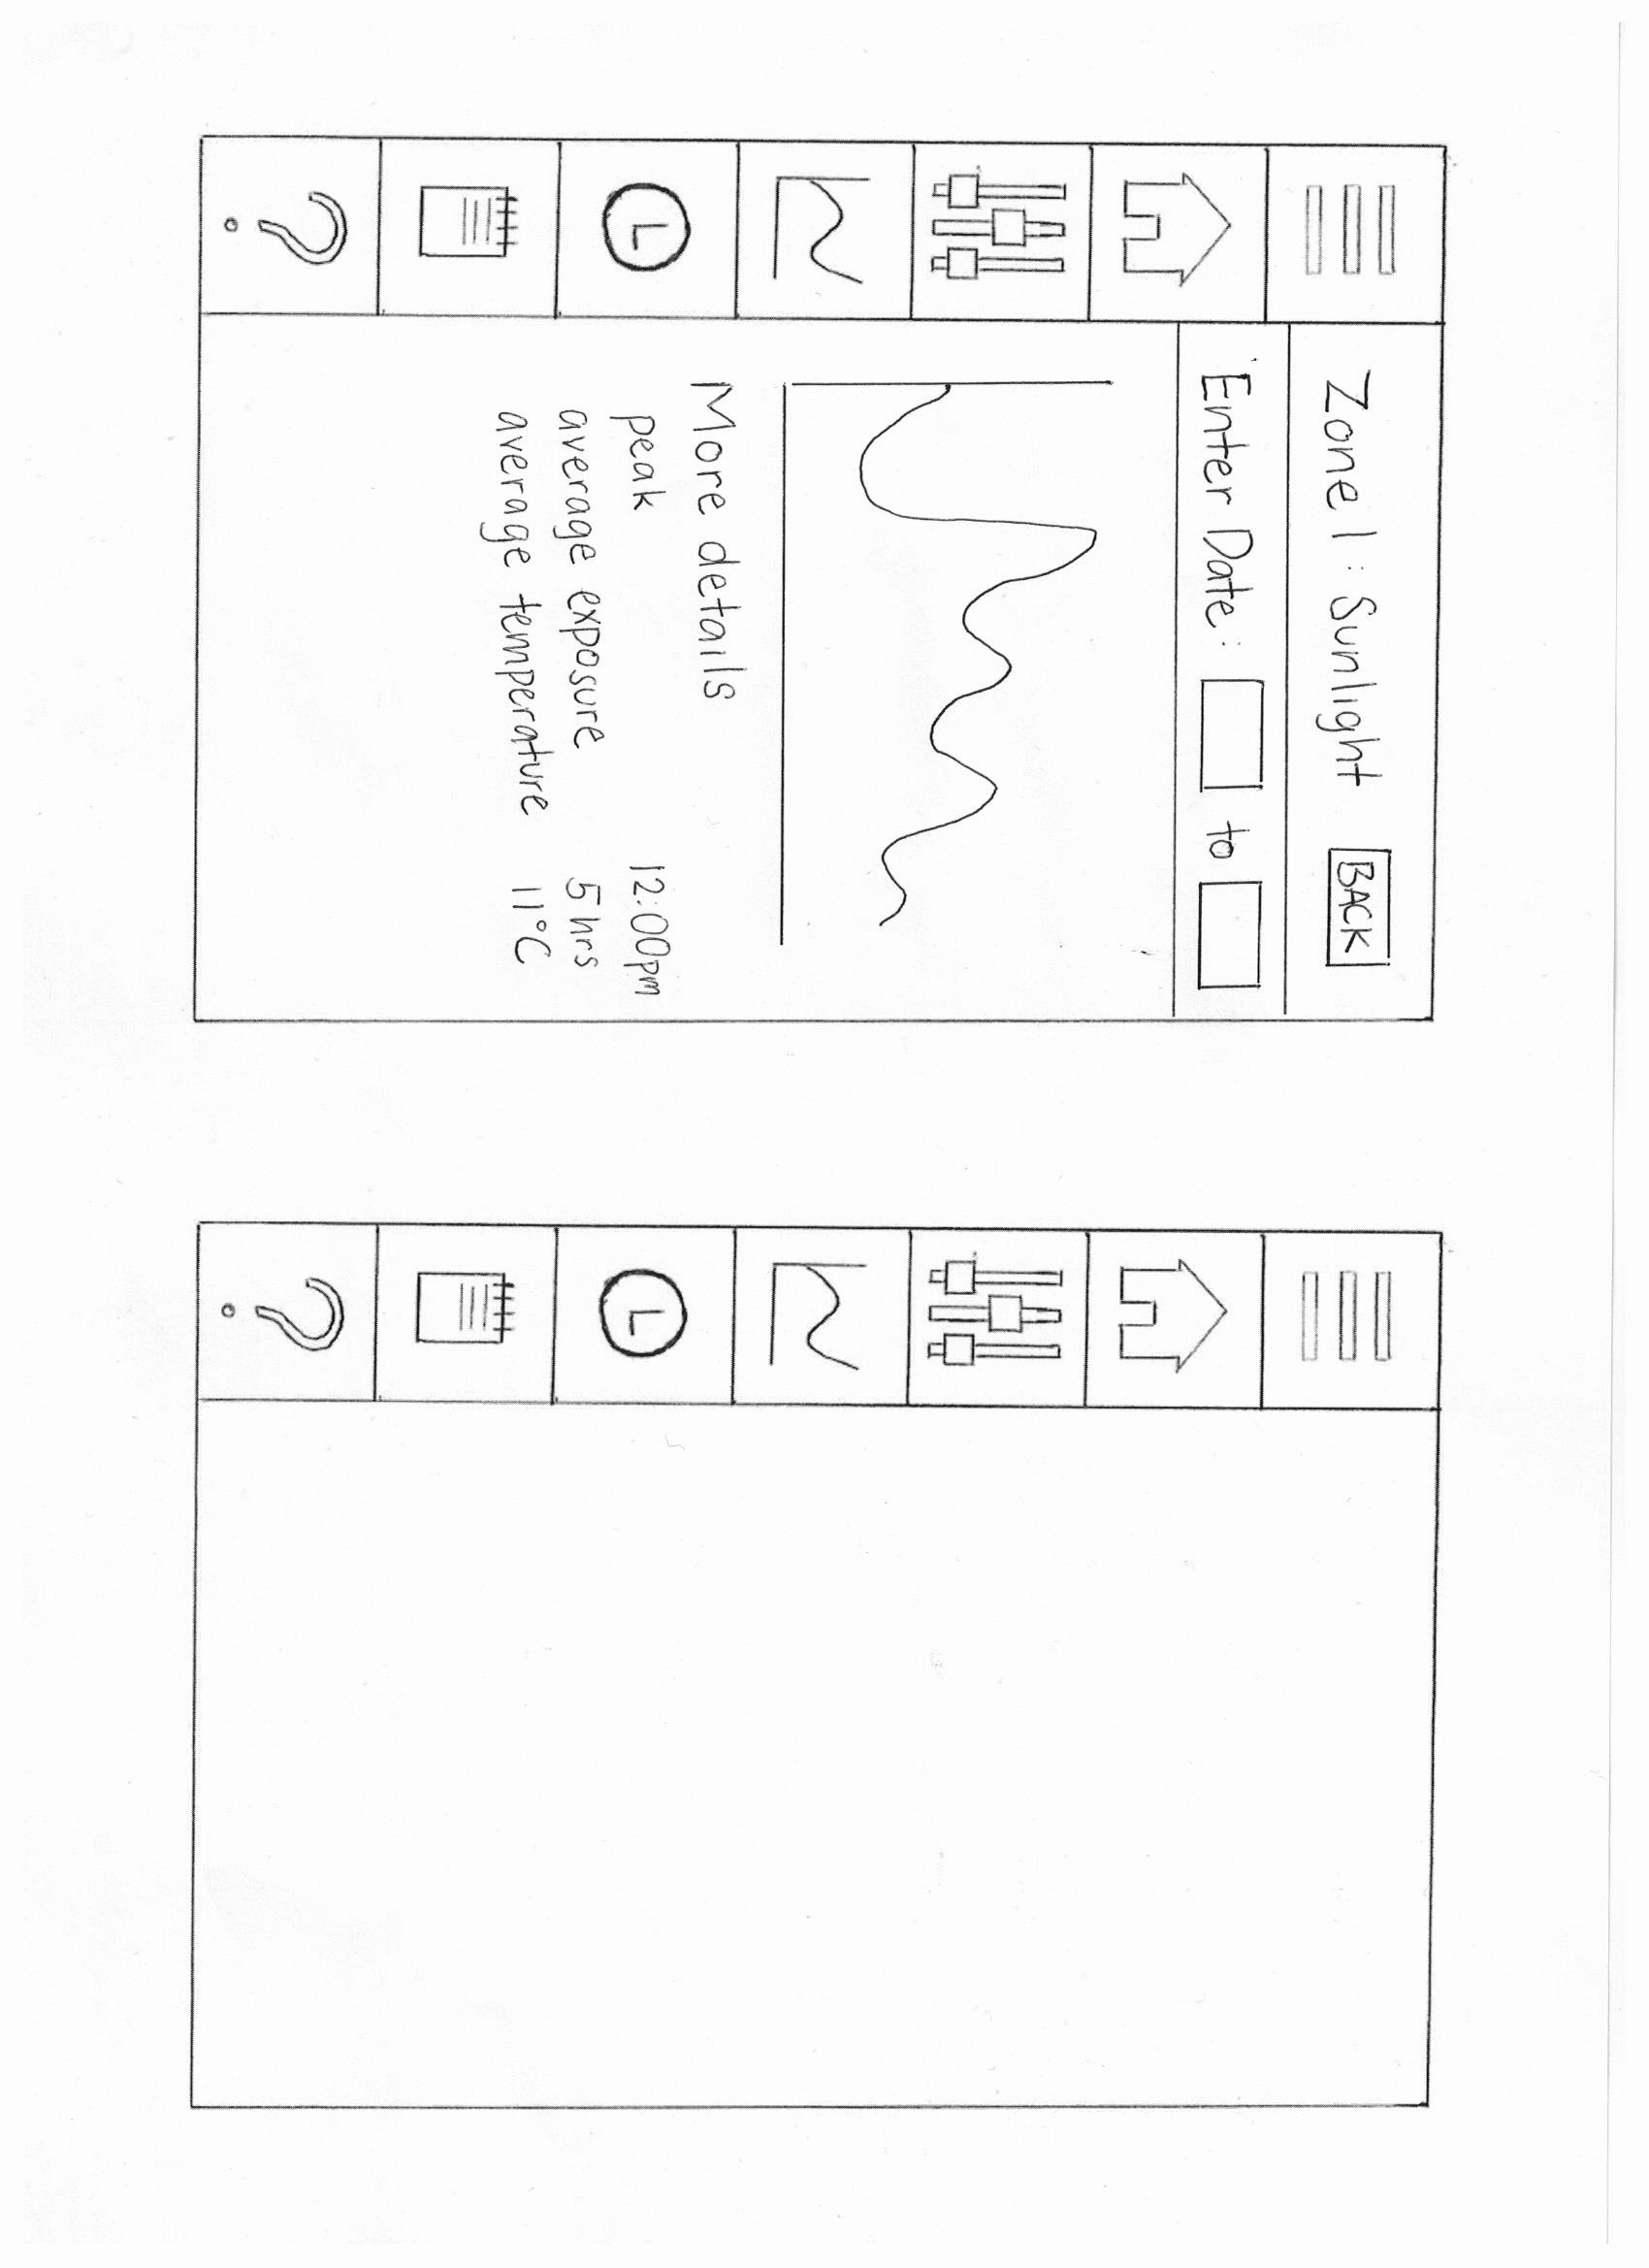 Zone 1: Sunlight BACK
Enter Date: to
More details
peak 12:00pm
average exposure 5 hrs
average temperature 11°C
?